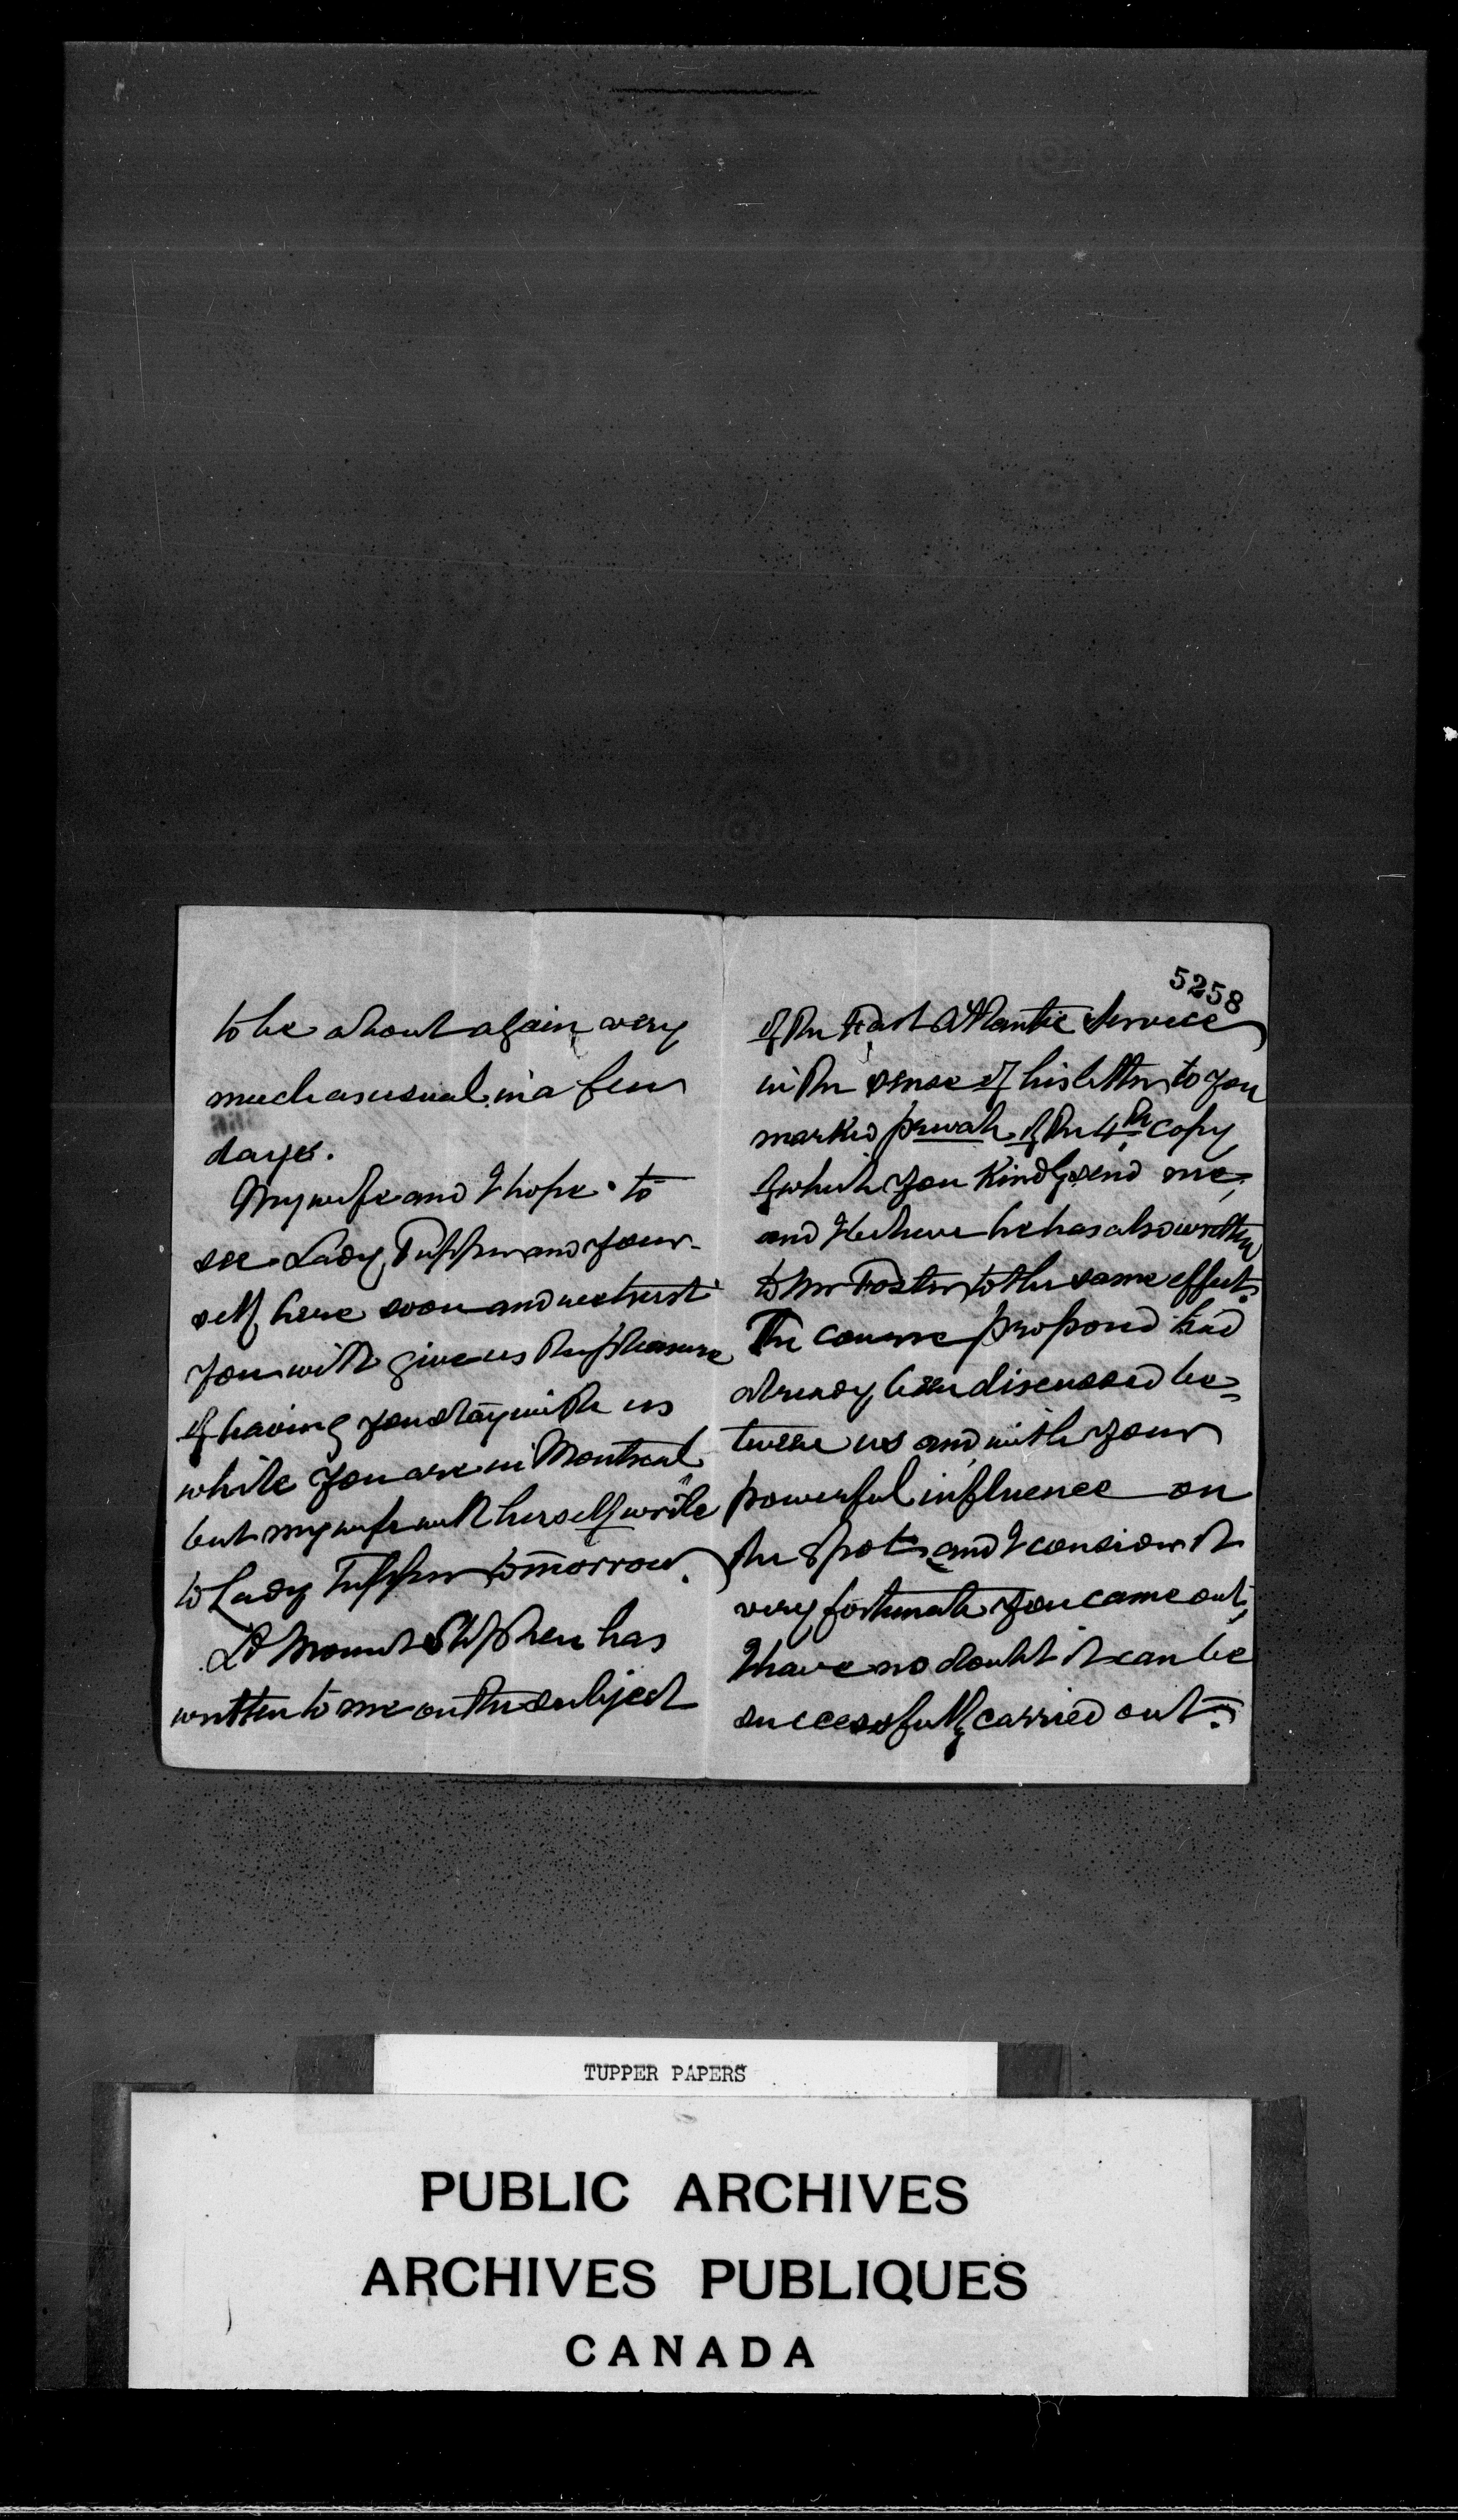 to be about again very
much as usual in a few
days.
My wife and I hope to
see Lady Tupper and your-
self here soon and we trust
you will give us the pleasure
of having you stay with us
while you are in Montreal
but my wife will herself write
to Lady Tupper tomorrow.
Ld Mount Stephen has
written to me on the subject
5258
of the Fast Atlantic Service
in the sense of his letter to you
marked private of the 4th copy
of which you kindly send me,
and I believe he has also written
to Mr Foster to the same effect.
The course proposed had
already been discussed be=
tween us and with your
powerful influence on
the spot and I consider it
very fortunate you came out,
I have no doubt it can be
successfully carried out.
TUPPER PAPERS
PUBLIC ARCHIVES
ARCHIVES PUBLIQUES
CANADA